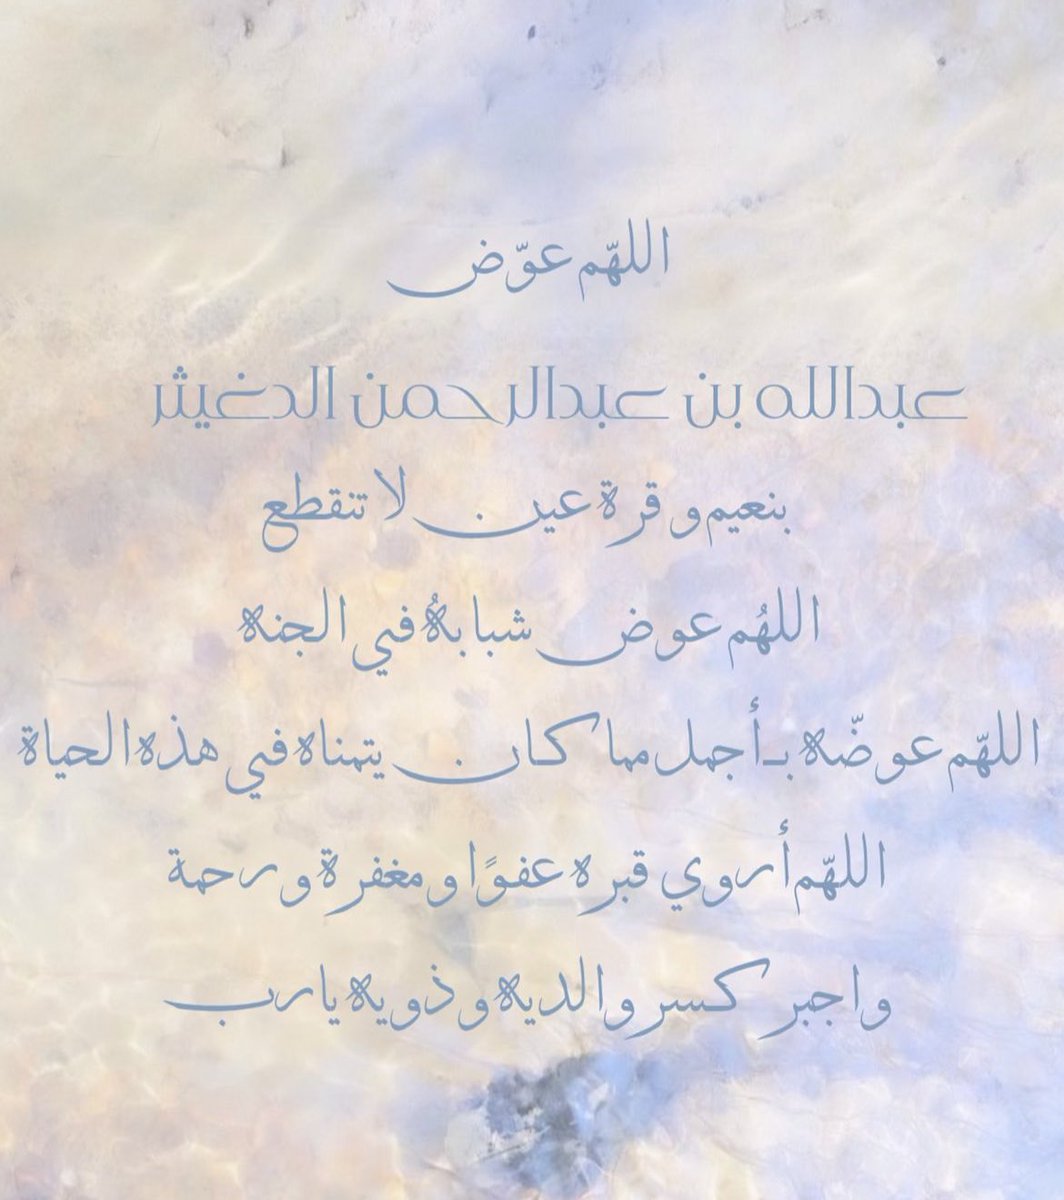 اللهّم عوّض
عبدالله بن عبدالرحمن الدغيثر
بنعيم و قرة عين لا تنقطع
اللهُم عوض شبابهُ في الجنه
اللهّم عوضّه بـ أجمل مما كان يتمناه في هذه الحياة
اللهّم أروي قبره عفوًا و مغفرة و رحمة
و اجبر كسر والديه و ذويه يارب